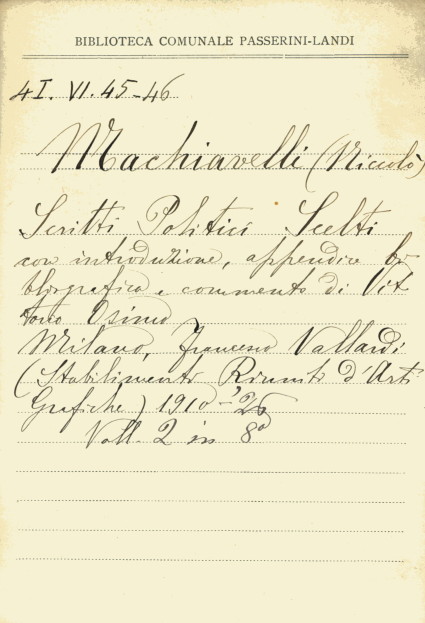 BIBLIOTECA COMUNALE PASSERINI-LANDI
4I. VI. 45-46
Machiavelli (Niccolò)
Scritti Politici Scelti
con introduzione, appendice bi-
bliografica e commento di Vit-
torio Osimo
Milano, Francesco Vallardi
(Stabilimenti Riuniti d'Arti
Grafiche) 1910-'26
Voll. 2 in 8°